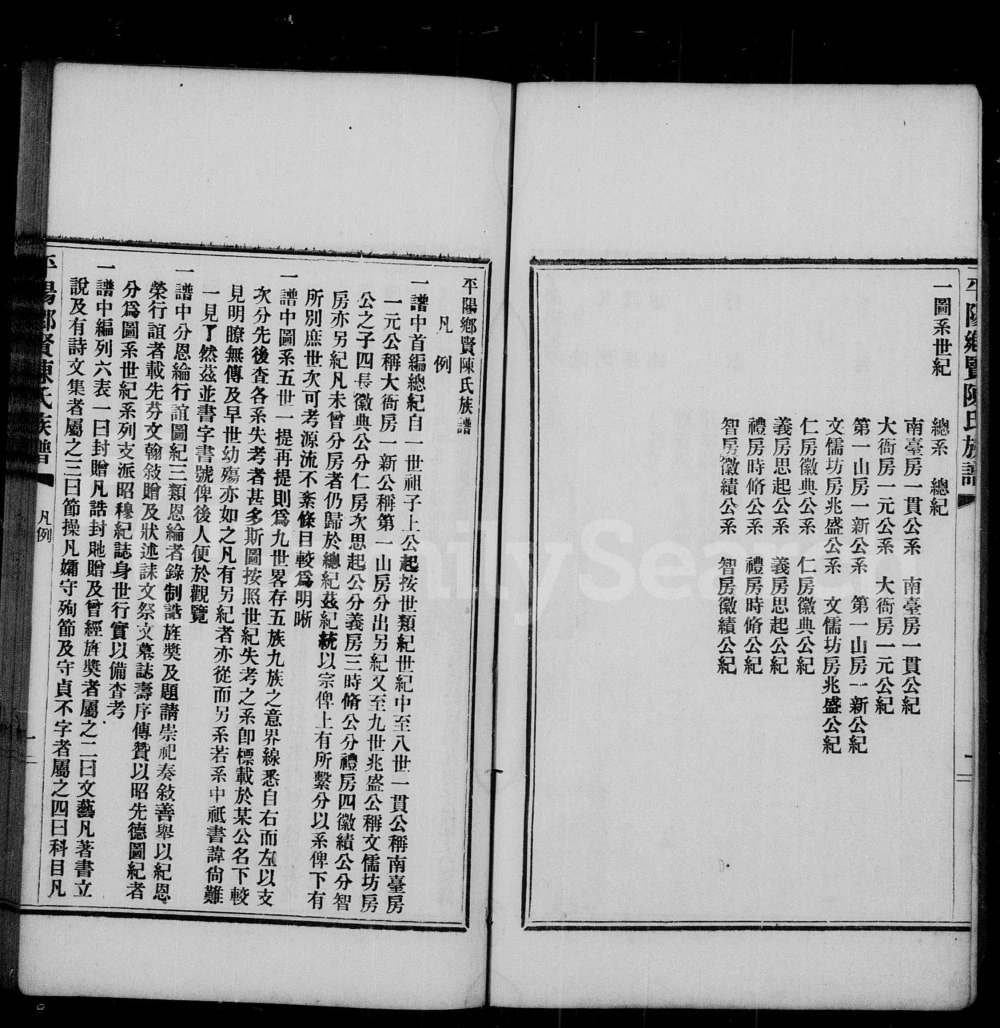 平陽鄉賢陳氏族譜
一圖系世紀
總系　總紀
南臺房一貫公系　南臺房一貫公紀
大衙房一元公系　大衙房一元公紀
第一山房一新公系　第一山房一新公紀
文儒坊房兆盛公系　文儒坊房兆盛公紀
仁房徽典公系　仁房徽典公紀
義房思起公系　義房思起公紀
禮房時脩公系　禮房時脩公紀
智房徽績公系　智房徽績公紀
平陽鄉賢陳氏族譜
凡例
一譜中首編總紀自一世祖子上公起按世類紀世紀中至八世一貫公稱南臺房
一元公稱大衙房一新公稱第一山房分出另紀又至九世兆盛公稱文儒坊房
公之子四長徽典公分仁房次思起公分義房三時脩公分禮房四徽績公分智
房亦另紀凡未曾分房者仍歸於總紀茲紀統以宗俾上有所繫分以系俾下有
所別庶世次可考源流不紊條目較爲明晰
一譜中圖系五世一提再提則爲九世畧存五族九族之意界線悉自右而左以支
次分先後查各系失考者甚多斯圖按照世紀失考之系卽標載於某公名下較
見明瞭無傳及早世幼殤亦如之凡有另紀者亦從而另系若系中祇書諱尙難
一見了然茲並書字書號俾後人便於觀覽
一譜中分恩綸行誼圖紀三類恩綸者錄制誥旌獎及題請崇祀奏敍善舉以紀恩
榮行誼者載先芬文翰敍贈及狀述誄文祭文墓誌壽序傳贊以昭先德圖紀者
分爲圖系世紀系列支派昭穆紀誌身世行實以備查考
一譜中編列六表一曰封贈凡誥封貤贈及曾經旌獎者屬之二曰文藝凡著書立
說及有詩文集者屬之三曰節操凡孀守殉節及守貞不字者屬之四曰科目凡
平陽鄉賢陳氏族譜
凡例
一
FamilySearch